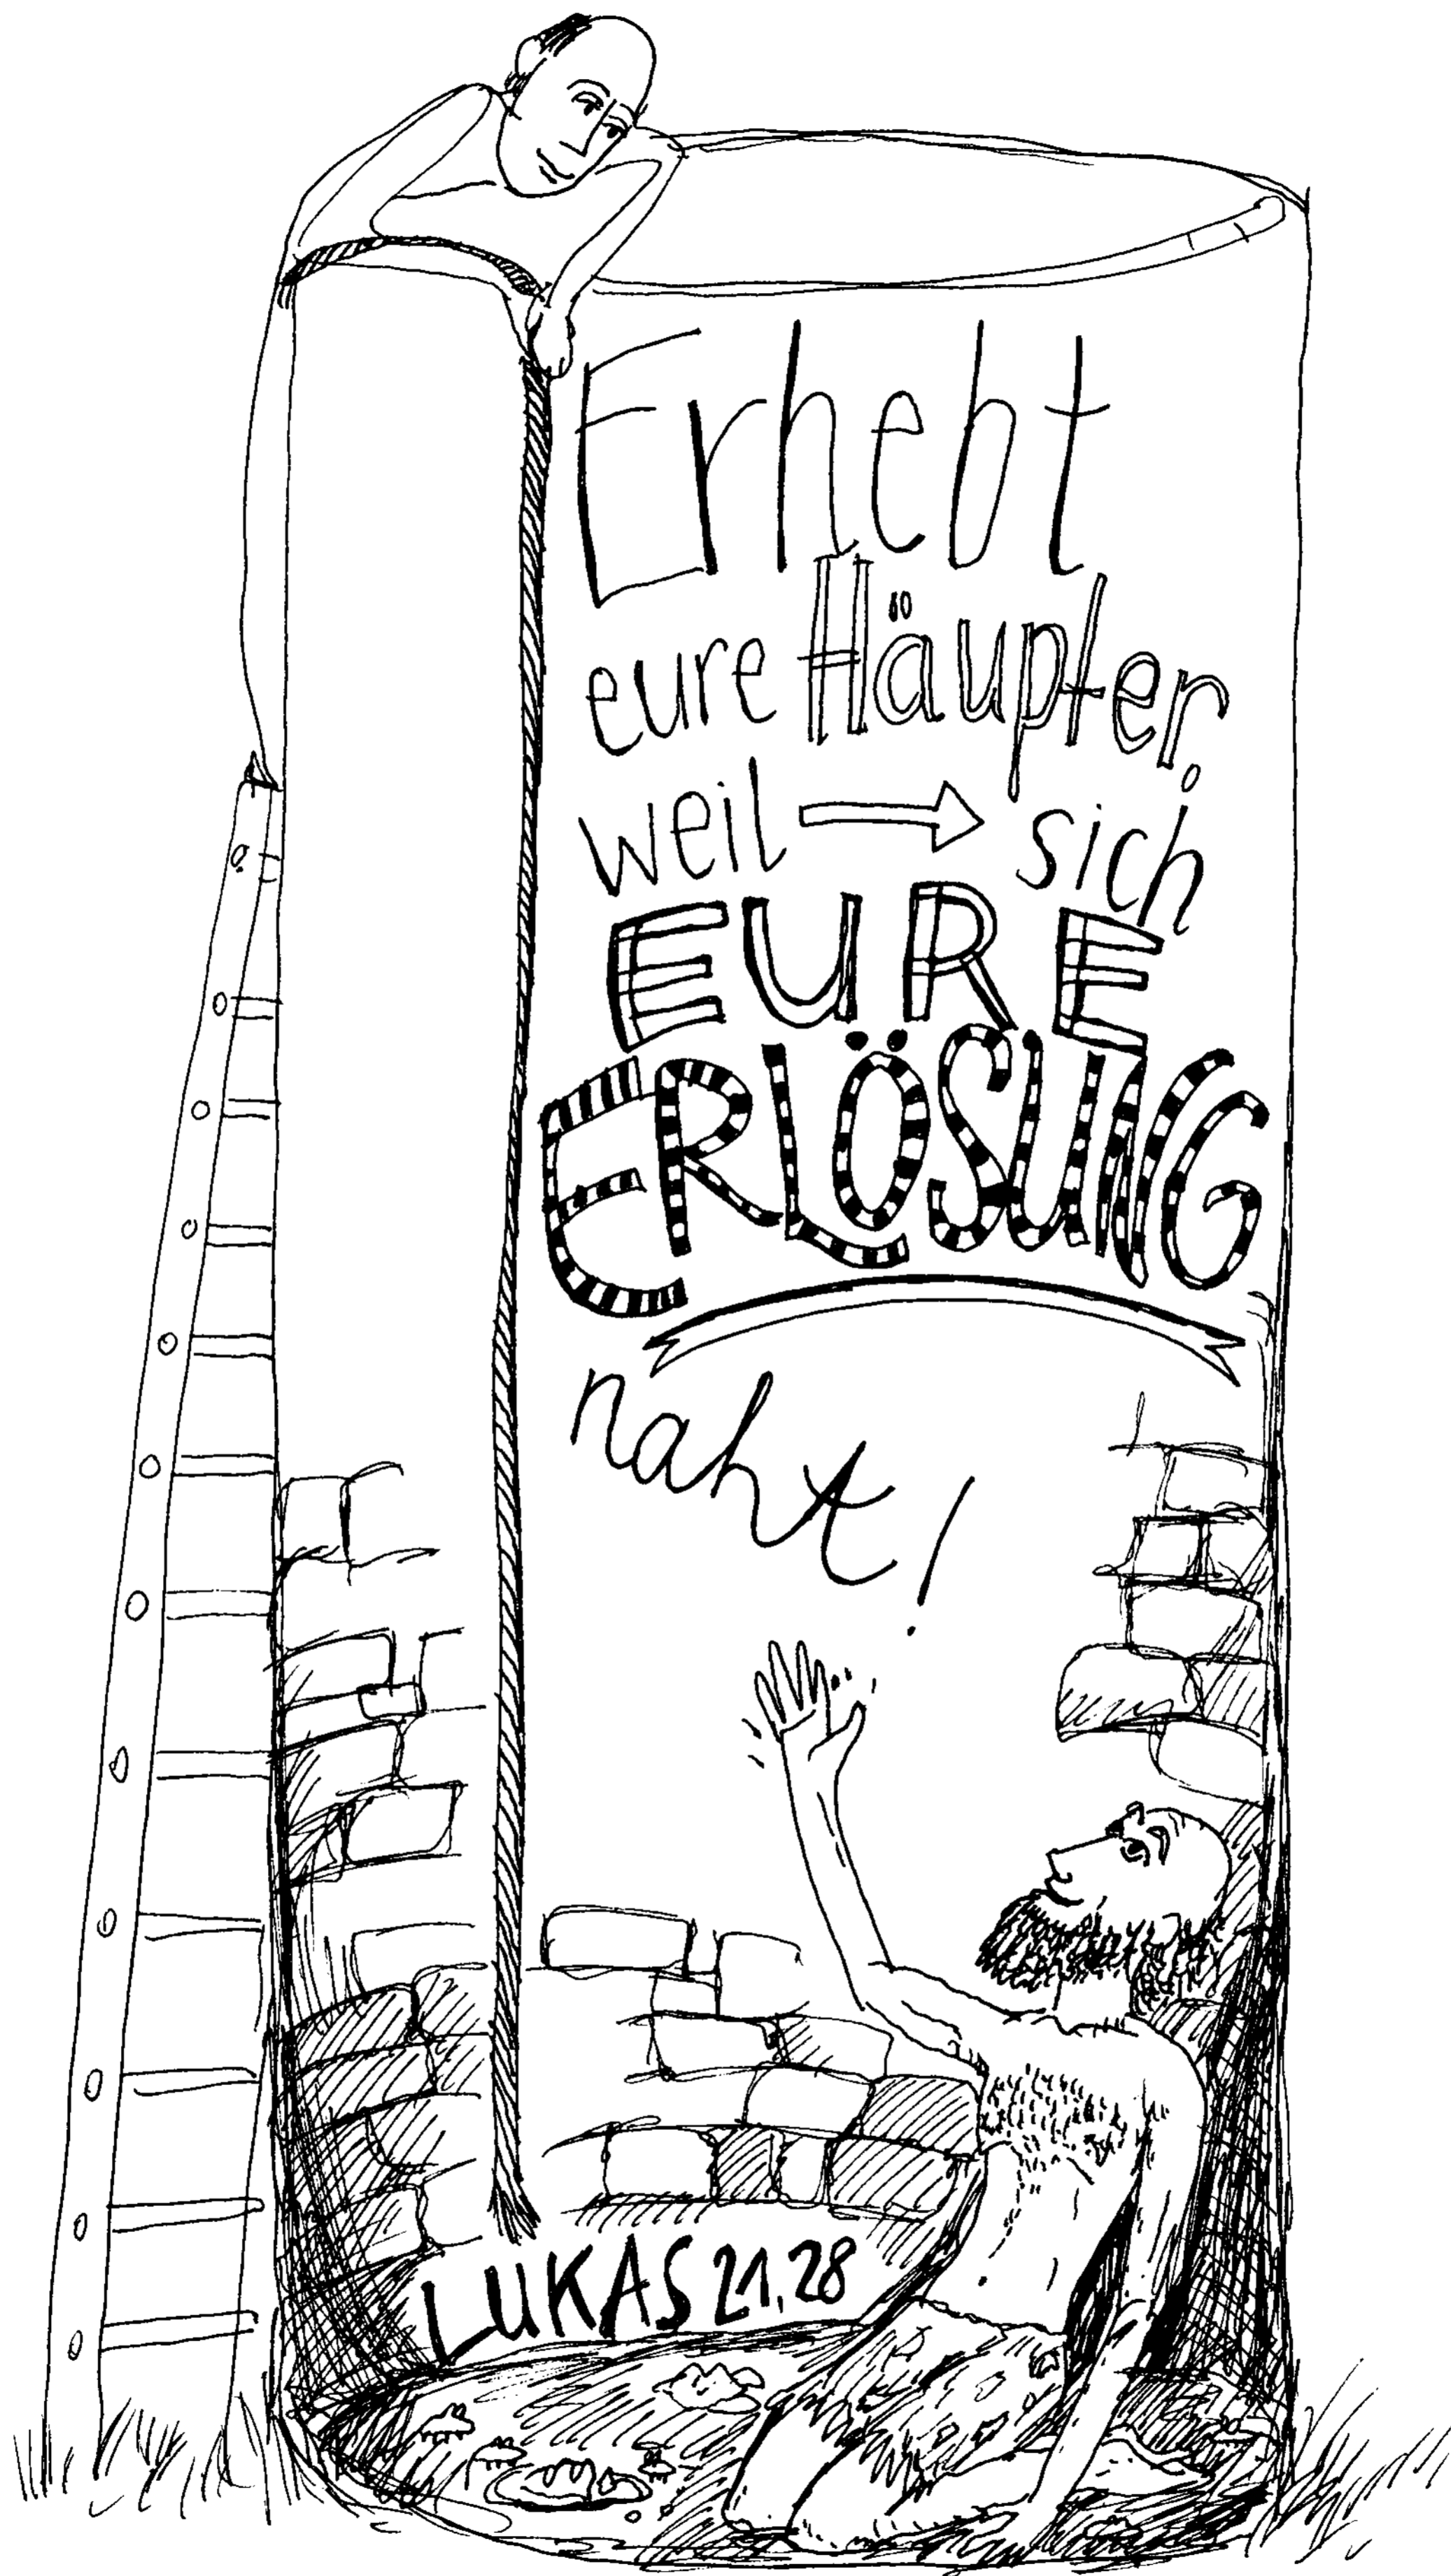 Erhebt
eure Häupter,
weil → sich
EURE
ERLÖSUNG
naht!
LUKAS 21,28